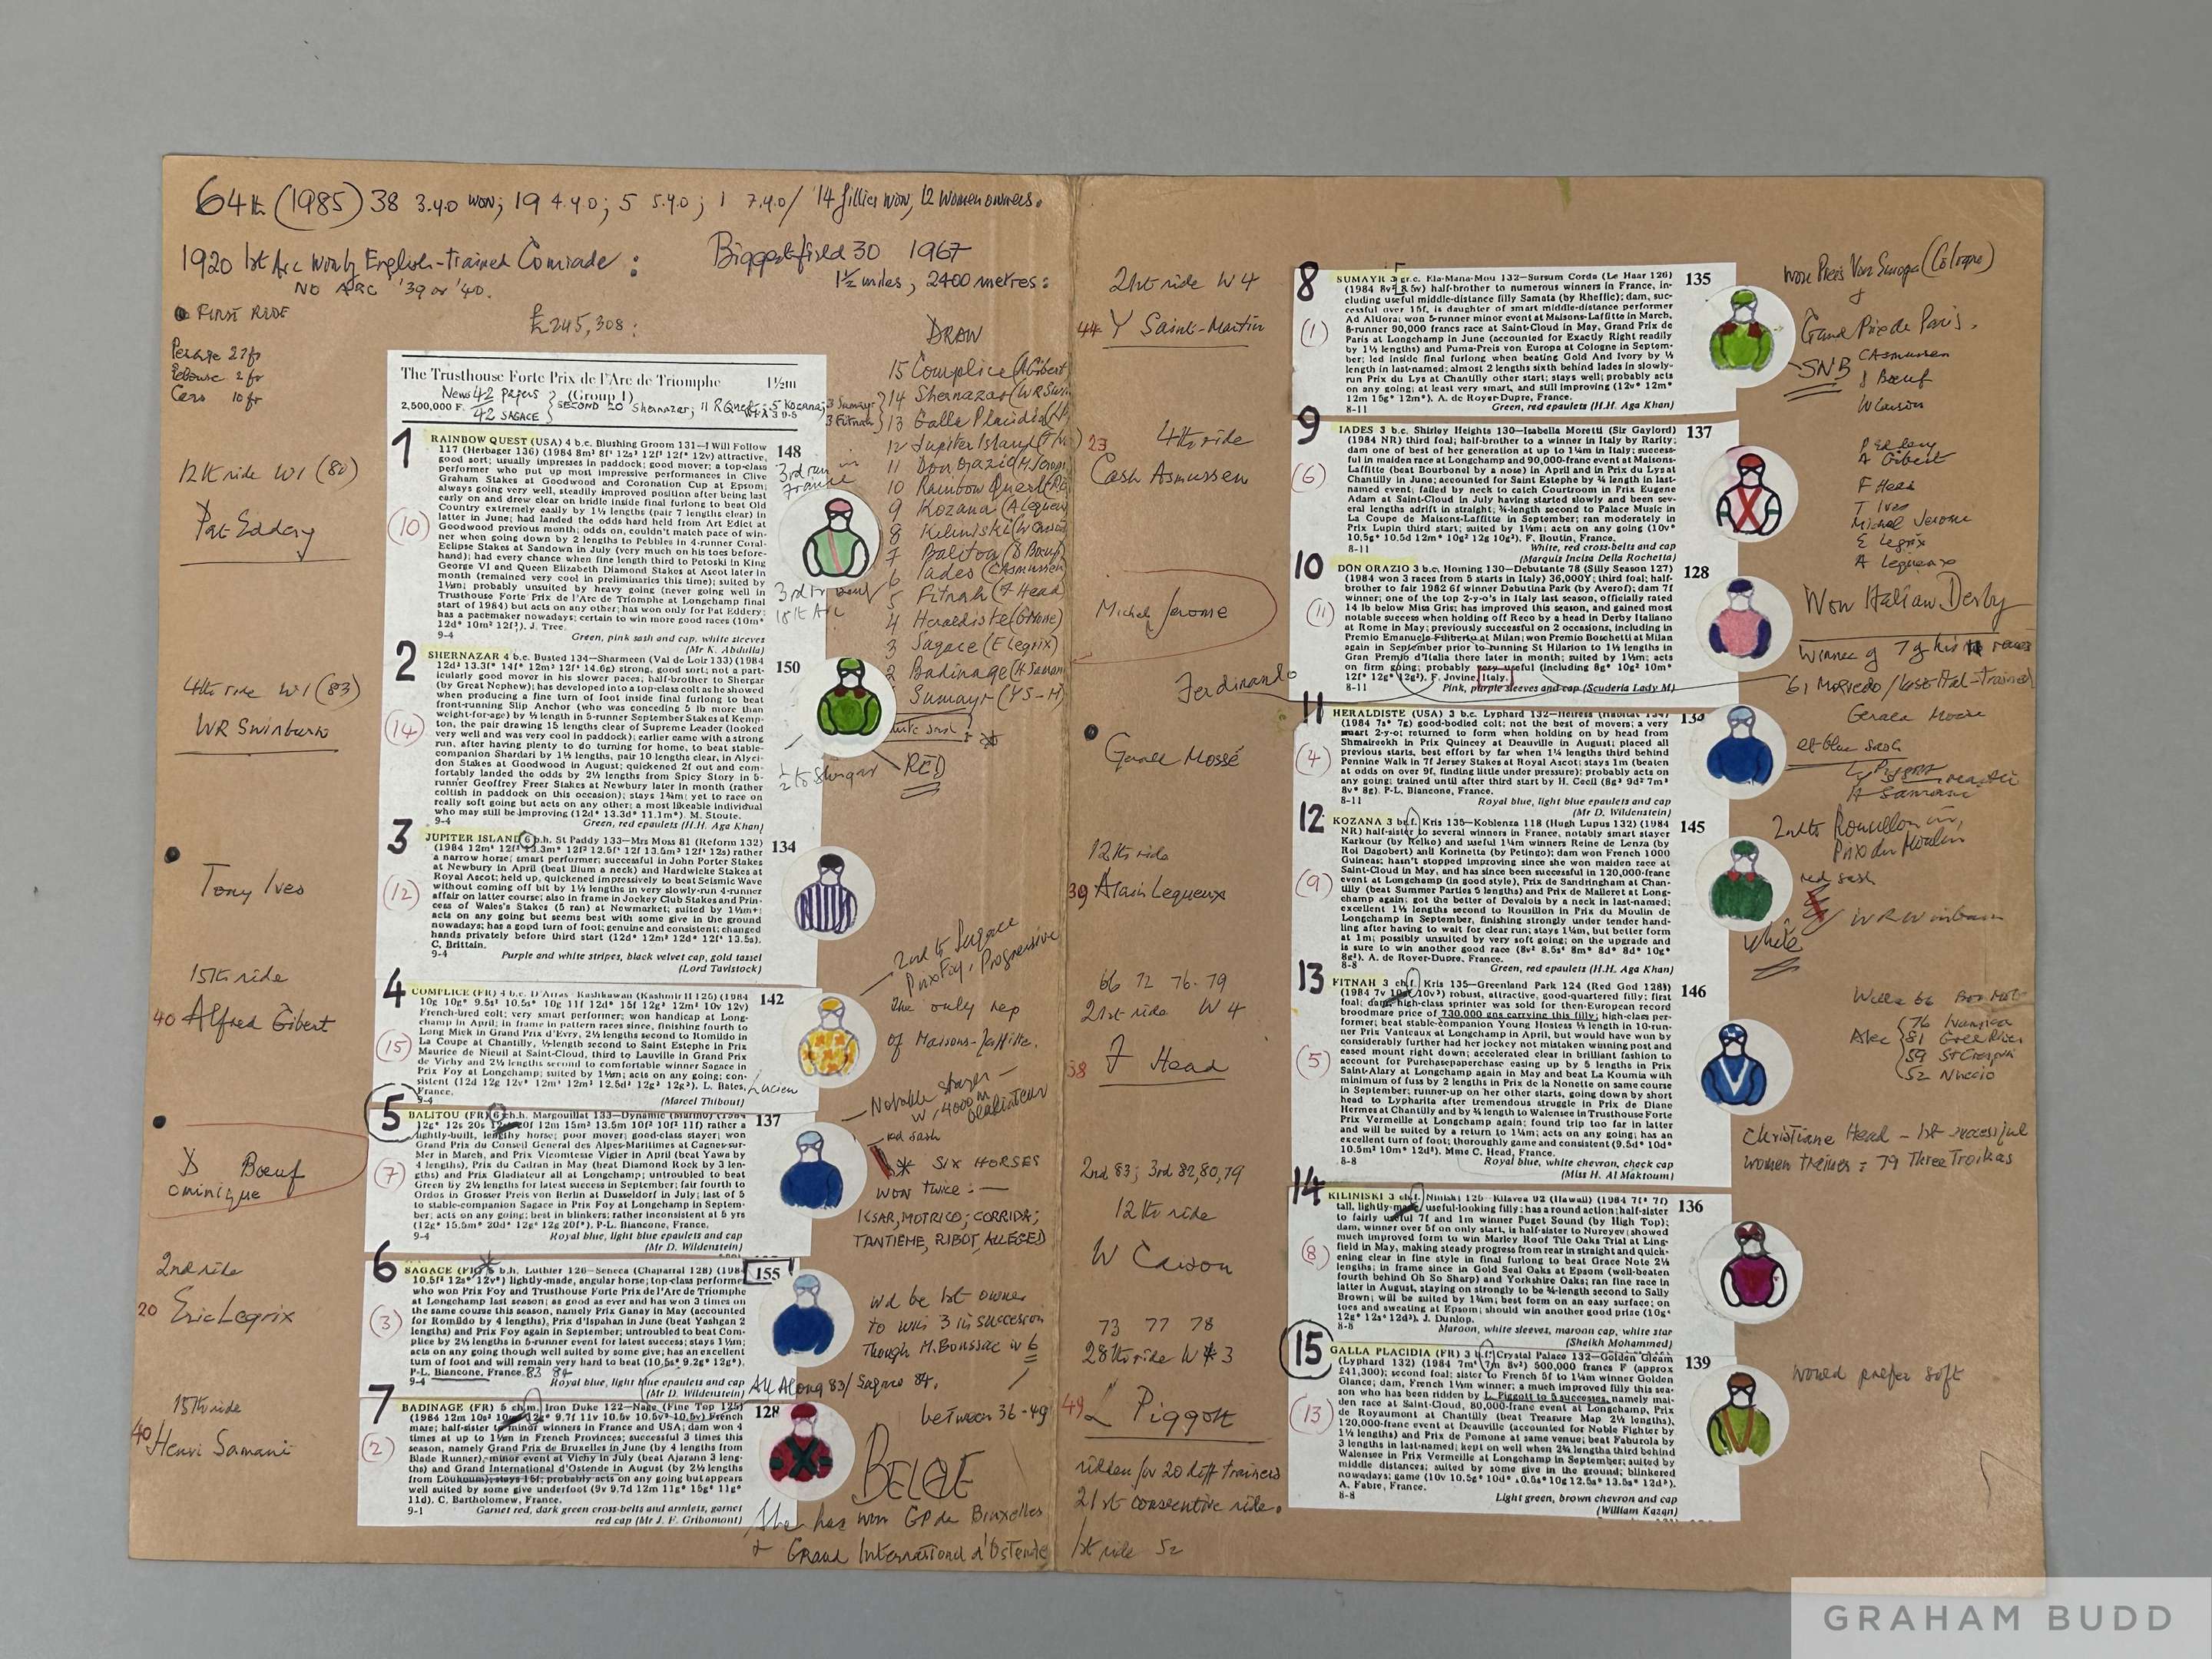 64th (1985) 38 3.y.o won; 19 4.y.o; 5 5.y.o; 1 7.y.o/ 14 fillies won, 12 women owners.
1920 1st Arc won by English-trained Comrade:
NO ARC '39 or '40.
Biggest field 30 1967
1½ miles, 2400 metres:
FIRST RIDE
£245,308:
Pelouse 2 fr
Cars 10 fr
The Trusthouse Forte Prix de l'Arc de Triomphe 1½m
(Group 1)
2,500,000 F.
News 42 papers
42 SAGACE
SECOND 20 Shernazar; 11 R Quest; 5 Kozana; 3 Sumayr
3 Fitnah
DRAW
15 Complice (A Gibert
14 Shernazar (WR Swin
13 Galla Placidia (L
12 Jupiter Island (T
11 Don Orazio (M Jerome
10 Rainbow Quest (P E
9 Kozana (A Lequeux
8 Kiliniski (W Carson
7 Balitou (D Bœuf)
6 Iades (C Asmussen
5 Fitnah (F Head)
4 Heraldiste (G Mosse)
3 Sagace (E Legrix)
2 Badinage (H Samani
Sumayr (Y S-M)
1
RAINBOW QUEST (USA) 4 b.c. Blushing Groom 131—I Will Follow 148
117 (Herbager 136) (1984 8m³ 8f² 12s³ 12f² 12f⁴ 12v) attractive,
good sort; usually impresses in paddock; good mover; a top-class
performer who put up most impressive performances in Clive
Graham Stakes at Goodwood and Coronation Cup at Epsom;
always going very well, steadily improved position after being last
early on and drew clear on bridle inside final furlong to beat Old
Country extremely easily by 1½ lengths (pair 7 lengths clear) in
latter in June; had landed the odds hard held from Art Edict at
Goodwood previous month; odds on, couldn't match pace of win-
ner when going down by 2 lengths to Pebbles in 4-runner Coral-
Eclipse Stakes at Sandown in July (very much on his toes before-
hand); had every chance when fine length third to Petoski in King
George VI and Queen Elizabeth Diamond Stakes at Ascot later in
month (remained very cool in preliminaries this time); suited by
1½m; probably unsuited by heavy going (never going well in
Trusthouse Forte Prix de l'Arc de Triomphe at Longchamp final
start of 1984) but acts on any other; has won only for Pat Eddery;
has a pacemaker nowadays; certain to win more good races (10m*
12d* 10m² 12f³). J. Tree.
9-4 Green, pink sash and cap, white sleeves
(Mr K. Abdulla)
12th ride W1 (80)
Pat Eddery
(10)
3rd run in
France
18th Arc
2
SHERNAZAR 4 b.c. Busted 134—Sharmeen (Val de Loir 133) (1984 150
12d² 13.3f* 14f* 12m³ 12f² 14.6g) strong, good sort; not a part-
icularly good mover in his slower paces; half-brother to Shergar
(by Great Nephew); has developed into a top-class colt as he showed
when producing a fine turn of foot inside final furlong to beat
front-running Slip Anchor (who was conceding 5 lb more than
weight-for-age) by ½ length in 5-runner September Stakes at Kemp-
ton, the pair drawing 15 lengths clear of Supreme Leader (looked
very well and was very cool in paddock); earlier came with a strong
run, after having plenty to do turning for home, to beat stable-
companion Shardari by 1½ lengths, pair 10 lengths clear, in Alyci-
don Stakes at Goodwood in August; quickened 2f out and com-
fortably landed the odds by 2½ lengths from Spicy Story in 5-
runner Geoffrey Freer Stakes at Newbury later in month (rather
coltish in paddock on this occasion); stays 1¾m; yet to race on
really soft going but acts on any other; a most likeable individual
who may still be improving (12d* 13.3d* 11.1m*). M. Stoute.
9-4 Green, red epaulets (H.H. Aga Khan)
4th ride W1 (83)
WR Swinburn
(14)
½ to Shergar
RED
3
JUPITER ISLAND 6 b.h. St Paddy 133—Mrs Moss 81 (Reform 132) 134
a narrow horse; smart performer; successful in John Porter Stakes
at Newbury in April (beat Ilium a neck) and Hardwicke Stakes at
Royal Ascot; held up, quickened impressively to beat Seismic Wave
without coming off bit by 1½ lengths in very slowly-run 4-runner
affair on latter course; also in frame in Jockey Club Stakes and Prin-
cess of Wales's Stakes (5 ran) at Newmarket; suited by 1½m+;
acts on any going but seems best with some give in the ground
nowadays; has a good turn of foot; genuine and consistent; changed
hands privately before third start (12d* 12m³ 12d* 12f⁴ 13.5s).
C. Brittain.
9-4 Purple and white stripes, black velvet cap, gold tassel
(Lord Tavistock)
Tony Ives
(12)
4
COMPLICE (FR) 4 b.c. D'Arras—Kashkawan (Kashmir II 125) (1984 142
French-bred colt; very smart performer; won handicap at Long-
champ in April; in frame in pattern races since, finishing fourth to
Long Mick in Grand Prix d'Evry, 2½ lengths second to Romildo in
La Coupe at Chantilly, ½-length second to Saint Estephe in Prix
Maurice de Nieuil at Saint-Cloud, third to Lauville in Grand Prix
de Vichy and 2½ lengths second to comfortable winner Sagace in
Prix Foy at Longchamp; suited by 1½m; acts on any going; con-
sistent (12d 12g 12v* 12m⁴ 12m² 12.5d² 12g³ 12g²). L. Bates,
France.
9-4 (Marcel Thibout)
Lucien
15th ride
40 Alfred Gibert
(15)
2nd to Sagace
Prix Foy. Progressive
The only rep
of Maisons-Laffitte.
5
BALITOU (FR) 6 ch.h. Margouillat 133—Dynamic 137
lightly-built, lengthy horse; poor mover; good-class stayer; won
Grand Prix du Conseil General des Alpes-Maritimes at Cagnes-sur-
Mer in March, and Prix Vicomtesse Vigier in April (beat Yawa by
4 lengths), Prix du Cadran in May (beat Diamond Rock by 3 len-
gths) and Prix Gladiateur all at Longchamp; untroubled to beat
Green by 2½ lengths for latest success in September; fair fourth to
Ordos in Grosser Preis von Berlin at Dusseldorf in July; last of 5
to stable-companion Sagace in Prix Foy at Longchamp in Septem-
ber; acts on any going; best in blinkers; rather inconsistent at 5 yrs
(12g* 15.5m* 20d* 12g⁴ 12g 20f*). P-L. Biancone, France.
9-4 Royal blue, light blue epaulets and cap
(Mr D. Wildenstein)
D Bœuf
ominique
(7)
Notable stayer —
W. 4000m
Gladiateur
red sash
* SIX HORSES
WON TWICE: —
KSAR, MOTRICO; CORRIDA;
TANTIEME, RIBOT, ALLEGED
6
SAGACE (FR) 5 b.h. Luthier 126—Seneca (Chaparral 128) (198 155
10.5f² 12s* 12v*) lightly-made, angular horse; top-class performer
who won Prix Foy and Trusthouse Forte Prix de l'Arc de Triomphe
at Longchamp last season; as good as ever and has won 3 times on
the same course this season, namely Prix Ganay in May (accounted
for Romildo by 4 lengths), Prix d'Ispahan in June (beat Yashgan 2
lengths) and Prix Foy again in September; untroubled to beat Com-
plice by 2½ lengths in 5-runner event for latest success; stays 1½m;
acts on any going though well suited by some give; has an excellent
turn of foot and will remain very hard to beat (10.5s* 9.2g* 12g*).
P-L. Biancone, France. 83 84
9-4 Royal blue, light blue epaulets and cap
(Mr D. Wildenstein) All Along 83/ Sagace 84.
2nd ride
20 Eric Legrix
(3)
Wd be 1st owner
to win 3 in succession
Though M. Boussac w 6
between 36-49
7
BADINAGE (FR) 5 ch.m. Iron Duke 122—Nage (Fine Top 125) 128
mare; half-sister to minor winners in France and USA; dam won 4
times at up to 1½m in French Provinces; successful 3 times this
season, namely Grand Prix de Bruxelles in June (by 4 lengths from
Blade Runner), minor event at Vichy in July (beat Ajarann 3 leng-
ths) and Grand International d'Ostende in August (by 2½ lengths
from Loukoum); stays 15f; probably acts on any going but appears
well suited by some give underfoot (9v 9.7d 12m 11g* 15g* 11g*
11d). C. Bartholomew, France.
9-1 Garnet red, dark green cross-belts and armlets, garnet
red cap (Mr J. F. Gribomont)
15th ride
40 Henri Samani
(2)
BELGE
She has won GP de Bruxelles
+ Grand International d'Ostende
21st ride W4
44 Y Saint-Martin
23 4th ride
Cash Asmussen
Michel Jerome
Ferdinando
Gerald Mossé
12th ride
39 Alain Lequeux
66 72 76. 79
21st ride W 4
38 F Head
2nd 83; 3rd 82,80,79
12th ride
W Carson
73 77 78
28th ride W 3
49 L Piggott
ridden for 20 diff trainers
21st consecutive ride.
1st ride 52
8
SUMAYR 3 gr.c. Ela-Mana-Mou 132—Sursum Corda (Le Haar 126) 135
(1984 8v² 8.5v) half-brother to numerous winners in France, in-
cluding useful middle-distance filly Samata (by Rheffic); dam, suc-
cessful over 15f, is daughter of smart middle-distance performer
Ad Altiora; won 5-runner minor event at Maisons-Laffitte in March,
8-runner 90,000 francs race at Saint-Cloud in May, Grand Prix de
Paris at Longchamp in June (accounted for Exactly Right readily
by 1½ lengths) and Puma-Preis von Europa at Cologne in Septem-
ber; led inside final furlong when beating Gold And Ivory by ½
length in last-named; almost 2 lengths sixth behind Iades in slowly-
run Prix du Lys at Chantilly other start; stays well; probably acts
on any going; at least very smart, and still improving (12v* 12m*
12m 15g* 12m*). A. de Royer-Dupre, France.
8-11 Green, red epaulets (H.H. Aga Khan)
(1)
Won Preis Von Europa (Cologne)
+
Grand Prix de Paris.
SNB
C Asmussen
D Bœuf
W Carson
P Eddery
A Gibert
F Head
T Ives
Michel Jerome
E Legrix
A Lequeux
9
IADES 3 b.c. Shirley Heights 130—Isabella Moretti (Sir Gaylord) 137
(1984 NR) third foal; half-brother to a winner in Italy by Rarity;
dam one of best of her generation at up to 1¼m in Italy; success-
ful in maiden race at Longchamp and 90,000-franc event at Maisons-
Laffitte (beat Bourbonel by a nose) in April and in Prix du Lys at
Chantilly in June; accounted for Saint Estephe by ¾ length in last-
named event; failed by neck to catch Courtroom in Prix Eugene
Adam at Saint-Cloud in July having started slowly and been sev-
eral lengths adrift in straight; ¾-length second to Palace Music in
La Coupe de Maisons-Laffitte in September; ran moderately in
Prix Lupin third start; suited by 1½m; acts on any going (10v*
10.5g* 10.5d 12m* 10g² 12g 10g²). F. Boutin, France.
8-11 White, red cross-belts and cap
(Marquis Incisa Della Rochetta)
(6)
10
DON ORAZIO 3 b.c. Homing 130—Debutante 78 (Silly Season 127) 128
(1984 won 3 races from 5 starts in Italy) 36,000Y; third foal; half-
brother to fair 1982 6f winner Debutina Park (by Averof); dam 7f
winner; one of the top 2-y-o's in Italy last season, officially rated
14 lb below Miss Gris; has improved this season, and gained most
notable success when holding off Reco by a head in Derby Italiano
at Rome in May; previously successful on 2 occasions, including in
Premio Emanuele Filiberto at Milan; won Premio Boschetti at Milan
again in September prior to running St Hilarion to 1½ lengths in
Gran Premio d'Italia there later in month; suited by 1½m; acts
on firm going; probably very useful (including 8g* 10g² 10m*
12f* 12g* 12g²). F. Jovine, Italy.
8-11 Pink, purple sleeves and cap (Scuderia Lady M)
(11)
Won Italian Derby
Winner of 7 of his races
61 Molvedo/last Ital-trained
11
HERALDISTE (USA) 3 b.c. Lyphard 132—Heiress
(1984 7s* 7g) good-bodied colt; not the best of movers; a very
smart 2-y-o; returned to form when holding on by head from
Shmaireekh in Prix Quincey at Deauville in August; placed all
previous starts, best effort by far when 1¼ lengths third behind
Pennine Walk in 7f Jersey Stakes at Royal Ascot; stays 1m (beaten
at odds on over 9f, finding little under pressure); probably acts on
any going; trained until after third start by H. Cecil (8g³ 9d² 7m³
8v* 8g). P-L. Biancone, France.
8-11 Royal blue, light blue epaulets and cap
(Mr D. Wildenstein)
(4)
Gerald Mosse
lt blue sash
H Samani
12
KOZANA 3 br.f. Kris 135—Koblenza 118 (Hugh Lupus 132) (1984 145
NR) half-sister to several winners in France, notably smart stayer
Karkour (by Relko) and useful 1¼m winners Reine de Lenza (by
Roi Dagobert) and Korinetta (by Petingo); dam won French 1000
Guineas; hasn't stopped improving since she won maiden race at
Saint-Cloud in May, and has since been successful in 120,000-franc
event at Longchamp (in good style), Prix de Sandringham at Chan-
tilly (beat Summer Parties 5 lengths) and Prix de Malleret at Long-
champ again; got the better of Devalois by a neck in last-named;
excellent 1½ lengths second to Rousillon in Prix du Moulin de
Longchamp in September, finishing strongly under tender hand-
ling after having to wait for clear run; stays 1¼m, but better form
at 1m; possibly unsuited by very soft going; on the upgrade and
is sure to win another good race (8v² 8.5s* 8m* 8d* 8d* 10g*
8g²). A. de Royer-Dupre, France.
8-8 Green, red epaulets (H.H. Aga Khan)
(9)
2nd to Rousillon in
Prix du Moulin
red sash
WR Swinburn
white
13
FITNAH 3 ch.f. Kris 135—Greenland Park 124 (Red God 128½) 146
(1984 7v 10v³) robust, attractive, good-quartered filly; first
foal; dam high-class sprinter was sold for then-European record
broodmare price of 730,000 gns carrying this filly; high-class per-
former; beat stable-companion Young Hostess ½ length in 10-run-
ner Prix Vanteaux at Longchamp in April, but would have won by
considerably further had her jockey not mistaken winning post and
eased mount right down; accelerated clear in brilliant fashion to
account for Purchasepaperchase easing up by 5 lengths in Prix
Saint-Alary at Longchamp again in May and beat La Koumia with
minimum of fuss by 2 lengths in Prix de la Nonette on same course
in September; runner-up on her other starts, going down by short
head to Lypharita after tremendous struggle in Prix de Diane
Hermes at Chantilly and by ¾ length to Walensee in Trusthouse Forte
Prix Vermeille at Longchamp again; found trip too far in latter
and will be suited by a return to 1¼m; acts on any going; has an
excellent turn of foot; thoroughly game and consistent (9.5d* 10d*
10.5m² 10m* 12d²). Mme C. Head, France.
8-8 Royal blue, white chevron, check cap
(Miss H. Al Maktoum)
(5)
Willie 66 Bon Mot
Alec 76 Ivanjica
81 Gold River
59 St Crespin
52 Nuccio
Christiane Head — 1st successful
women trainer: 79 Three Troikas
14
KILINISKI 3 ch.f. Niniski 125—Kilavea 92 (Hawaii) (1984 7f⁴ 7f) 136
tall, lightly-made, useful-looking filly; has a round action; half-sister
to fairly useful 7f and 1m winner Puget Sound (by High Top);
dam, winner over 5f on only start, is half-sister to Nureyev; showed
much improved form to win Marley Roof Tile Oaks Trial at Ling-
field in May, making steady progress from rear in straight and quick-
ening clear in fine style in final furlong to beat Grace Note 2½
lengths; in frame since in Gold Seal Oaks at Epsom (well-beaten
fourth behind Oh So Sharp) and Yorkshire Oaks; ran fine race in
latter in August, staying on strongly to be ¾-length second to Sally
Brown; will be suited by 1¾m; best form on an easy surface; on
toes and sweating at Epsom; should win another good prize (10g*
12g* 12s⁴ 12d²). J. Dunlop.
8-8 Maroon, white sleeves, maroon cap, white star
(Sheikh Mohammed)
(8)
15
GALLA PLACIDIA (FR) 3 b.f. Crystal Palace 132—Golden Gleam 139
(Lyphard 132) (1984 7m* 7m 8v²) 500,000 francs F (approx
£41,300); second foal; sister to French 5f to 1¼m winner Golden
Glance; dam, French 1¼m winner; a much improved filly this sea-
son who has been ridden by L. Piggott to 5 successes, namely mai-
den race at Saint-Cloud, 80,000-franc event at Longchamp, Prix
de Royaumont at Chantilly (beat Treasure Map 2½ lengths),
120,000-franc event at Deauville (accounted for Noble Fighter by
1½ lengths) and Prix de Pomone at same venue; beat Faburola by
3 lengths in last-named; kept on well when 2¾ lengths third behind
Walensee in Prix Vermeille at Longchamp in September; suited by
middle distances; suited by some give in the ground; blinkered
nowadays; game (10v 10.5g* 10d* 10.5s* 10g 12.5s* 13.5s* 12d³).
A. Fabre, France.
8-8 Light green, brown chevron and cap
(William Kazan)
(13)
Would prefer soft
GRAHAM BUDD